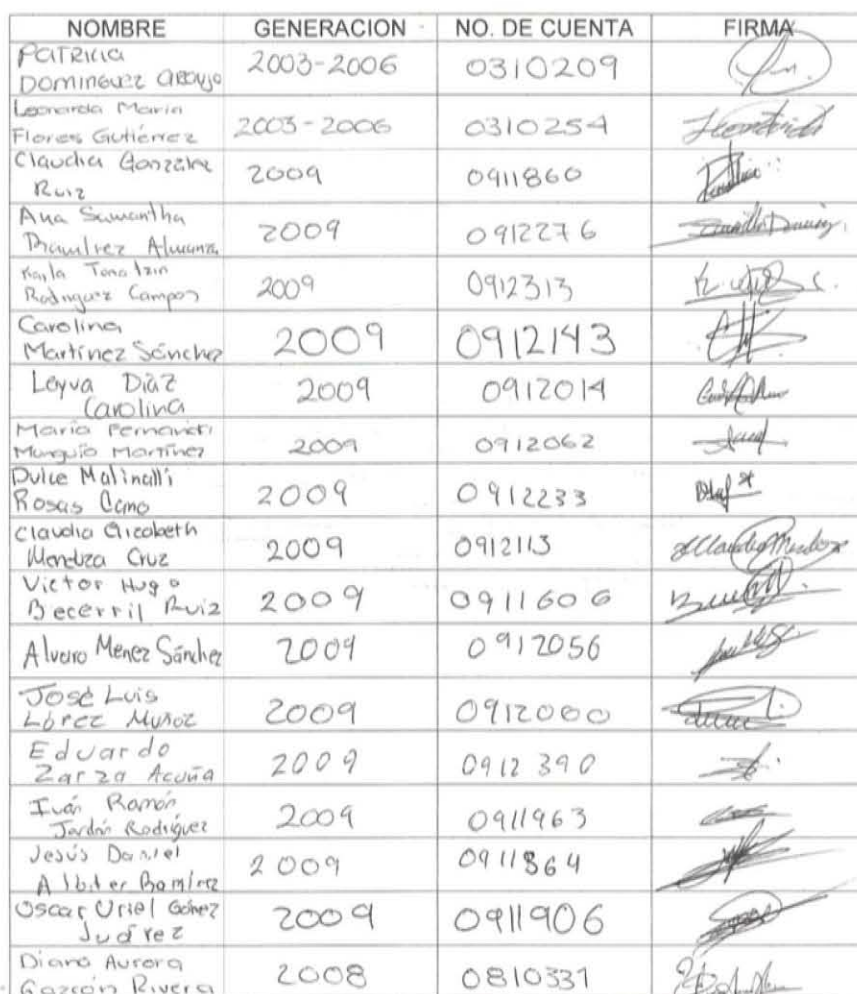 NOMBRE GENERACION NO. DE CUENTA FIRMA
Patricia
Dominguez Araujo 2003-2006 0310209
Leonarda Maria
Flores Gutiérrez 2003-2006 0310254
Claudia González
Ruiz 2009 0911860
Ana Samantha
Ramírez Almanza 2009 0912276
Karla Tonatzin
Rodriguez Campos 2009 0912313
Carolina
Martínez Sánchez 2009 0912143
Leyva Díaz
Carolina 2009 0912014
María Fernanda
Munguío Martínez 2009 0912062
Dulce Malinalli
Rosas Cano 2009 0912233
Claudia Elizabeth
Mendoza Cruz 2009 0912113
Victor Hugo
Becerril Ruiz 2009 0911606
Alvaro Menez Sánchez 2009 0912056
José Luis
López Muñoz 2009 0912000
Eduardo
Zarza Acuña 2009 0912390
Iván Ramón
Jardón Rodríguez 2009 0911963
Jesús Daniel
Albiter Ramírez 2009 0911864
Oscar Uriel Gómez
Juárez 2009 0911906
Diana Aurora
Garzón Rivera 2008 0810331